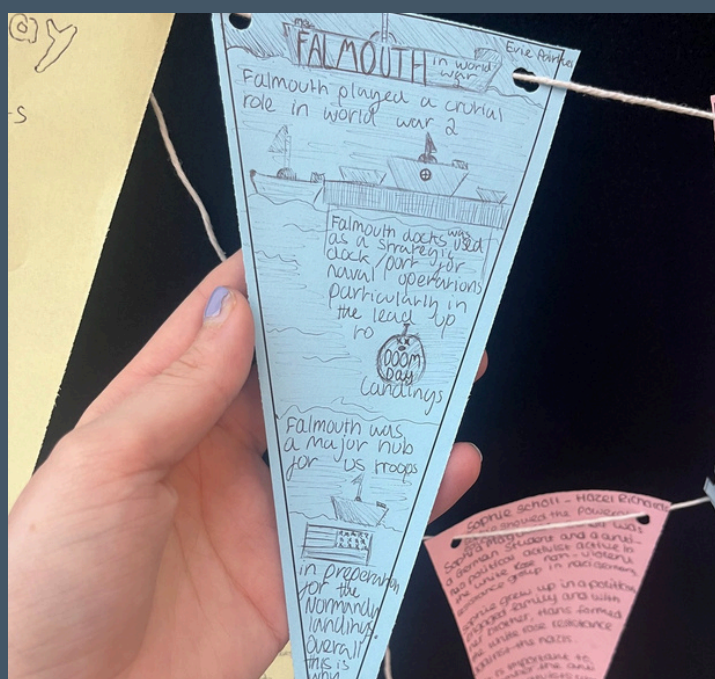 FALMOUTH in world war
Evie
Falmouth played a crutial
role in world war 2
Falmouth docks was used
as a strategic
dock/port for
naval operations
particularly in
the lead up
to
DOOM
Day
landings
Falmouth was
a major hub
for US troops
in preperation
for the
Normandy
landings.
Overall
this is
why
Sophie Scholl - Hazel
showed the power
was
a German student and
a political activist active in
the white rose non-violent
resistance group in nazi germany
Sophie grew up in a politically
engaged family and with
her brother, Hans formed
the white rose resistance
against the nazis.
is important to